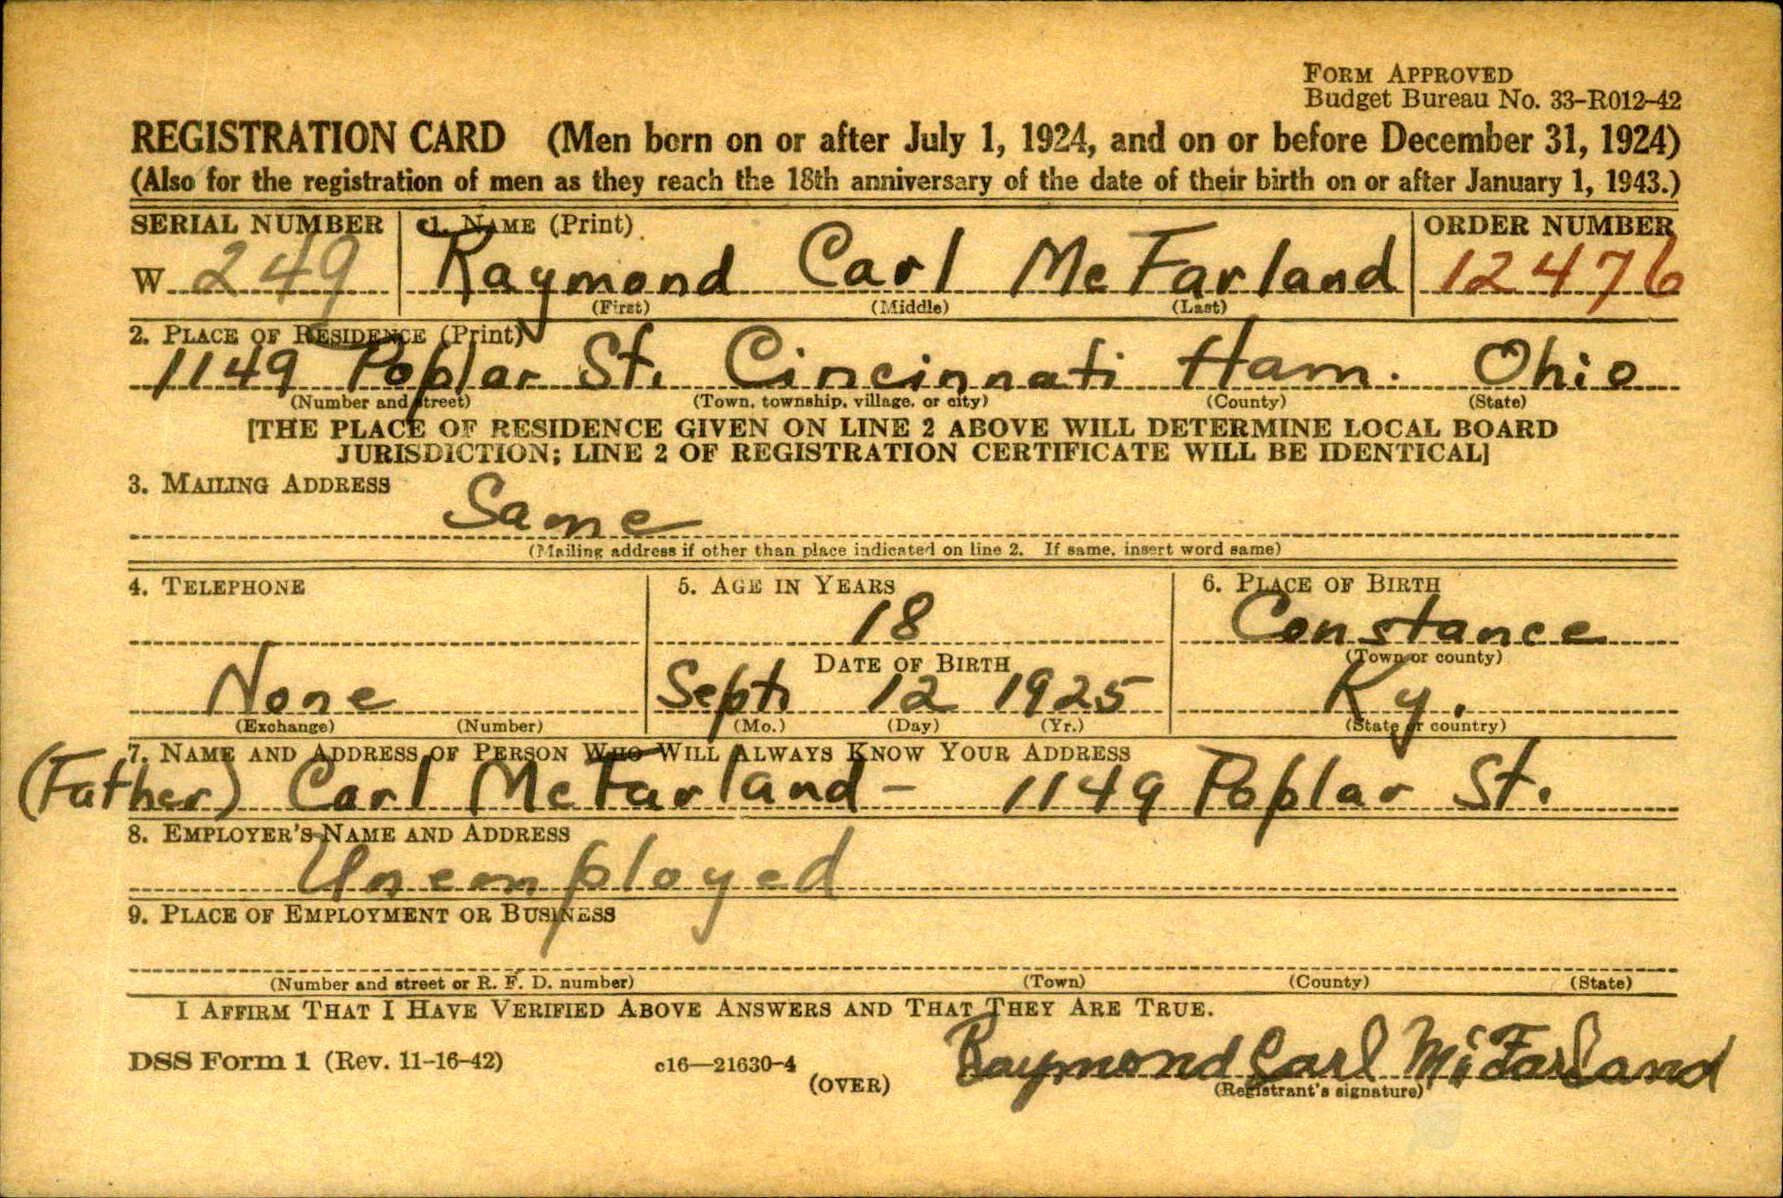 FORM APPROVED
Budget Bureau No. 33-R012-42
REGISTRATION CARD (Men born on or after July 1, 1924, and on or before December 31, 1924)
(Also for the registration of men as they reach the 18th anniversary of the date of their birth on or after January 1, 1943.)
SERIAL NUMBER 1. NAME (Print) ORDER NUMBER
W 249 Raymond Carl McFarland 12476
(First) (Middle) (Last)
2. PLACE OF RESIDENCE (Print)
1149 Poplar St. Cincinnati Ham. Ohio
(Number and street) (Town, township, village, or city) (County) (State)
[THE PLACE OF RESIDENCE GIVEN ON LINE 2 ABOVE WILL DETERMINE LOCAL BOARD
JURISDICTION; LINE 2 OF REGISTRATION CERTIFICATE WILL BE IDENTICAL]
3. MAILING ADDRESS
Same
(Mailing address if other than place indicated on line 2. If same, insert word same)
4. TELEPHONE 5. AGE IN YEARS 6. PLACE OF BIRTH
18 Constance
DATE OF BIRTH (Town or county)
None Sept. 12 1925 Ky.
(Exchange) (Number) (Mo.) (Day) (Yr.) (State or country)
7. NAME AND ADDRESS OF PERSON WHO WILL ALWAYS KNOW YOUR ADDRESS
(Father) Carl McFarland - 1149 Poplar St.
8. EMPLOYER'S NAME AND ADDRESS
Unemployed
9. PLACE OF EMPLOYMENT OR BUSINESS
(Number and street or R. F. D. number) (Town) (County) (State)
I AFFIRM THAT I HAVE VERIFIED ABOVE ANSWERS AND THAT THEY ARE TRUE.
DSS Form 1 (Rev. 11-16-42) c16—21630-4 (OVER) Raymond Carl McFarland
(Registrant's signature)